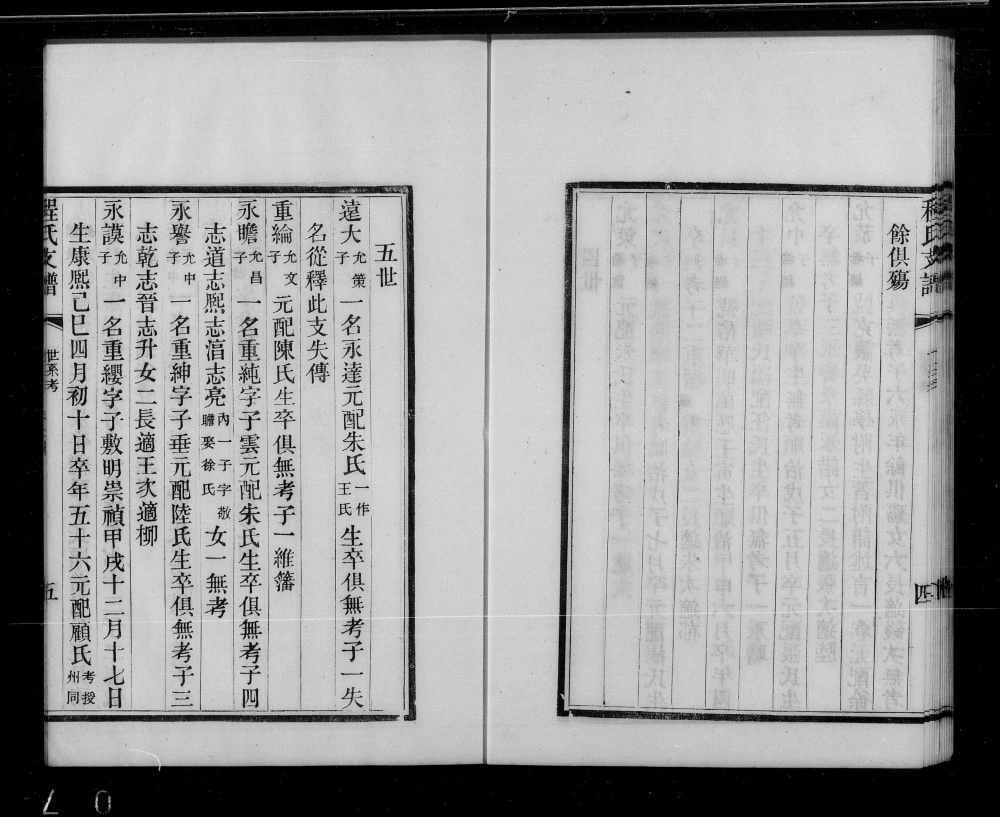 餘俱殤
四
五世
遠大允策子一名永達元配朱氏一作王氏生卒俱無考子一失
名從釋此支失傳
重綸允文子元配陳氏生卒俱無考子一維藩
永瞻允昌子一名重純字子雲元配朱氏生卒俱無考子四
志道志熙志涫志亮內一子字敬瞻娶徐氏女一無考
永譽允中子一名重紳字子垂元配陸氏生卒俱無考子三
志乾志晉志升女二長適王次適栁
永謨允中子一名重纓字子敷明崇禎甲戌十二月十七日
生康熙己巳四月初十日卒年五十六元配顧氏考授州同
程氏支譜
世系考
五